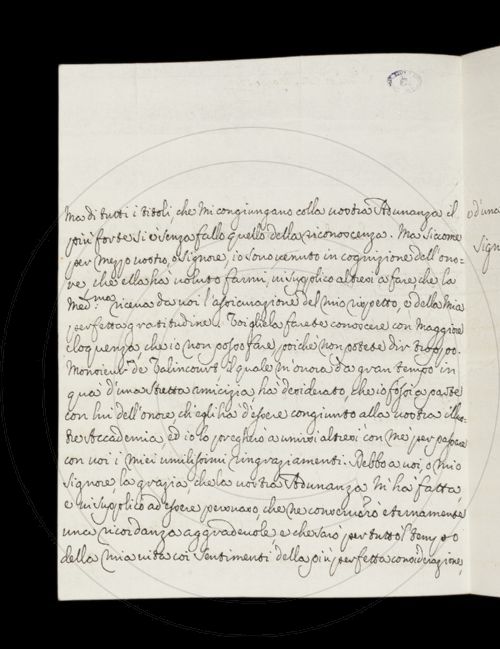 Ma di tutti i titoli, che Mi congiungano colla vostra Adunanza il
più forte si è senza fallo quello della riconoscenza. Ma siccome
per mezzo vostro, o Signore, io sono venuto in cognizione dell'ono-
re, che ella hà voluto farmi, vi supplico altresì a fare, che la
Med.ma riceva da voi l'assicurazione del mio rispetto, e della Mia
perfetta gratitudine. Voi gliela farete conoscere con Maggiore
eloquenza che io non posso fare, poiche non potete dir troppo.
Monsieur de Talincourt il quale m'onora da gran tempo in
quà d'una stretta amicizia hà desiderato, che io fossi a parte
con lui dell'onore ch'egli hà d'essere congiunto alla vostra illus-
tre Accademia, ed io lo pregherò a unirsi altresì con me per passare
con voi i miei umilissimi ringraziamenti. Debbo a voi, o mio
Signore, la grazia, che la vostra Adunanza M'hà fatta,
e vi supplico ad essere persuaso che ne conserverò eternamente
una ricordanza aggradevole e che sarò per tutto il tempo
della Mia vita coi sentimenti della più perfetta considerazione,
o d'una
Sign